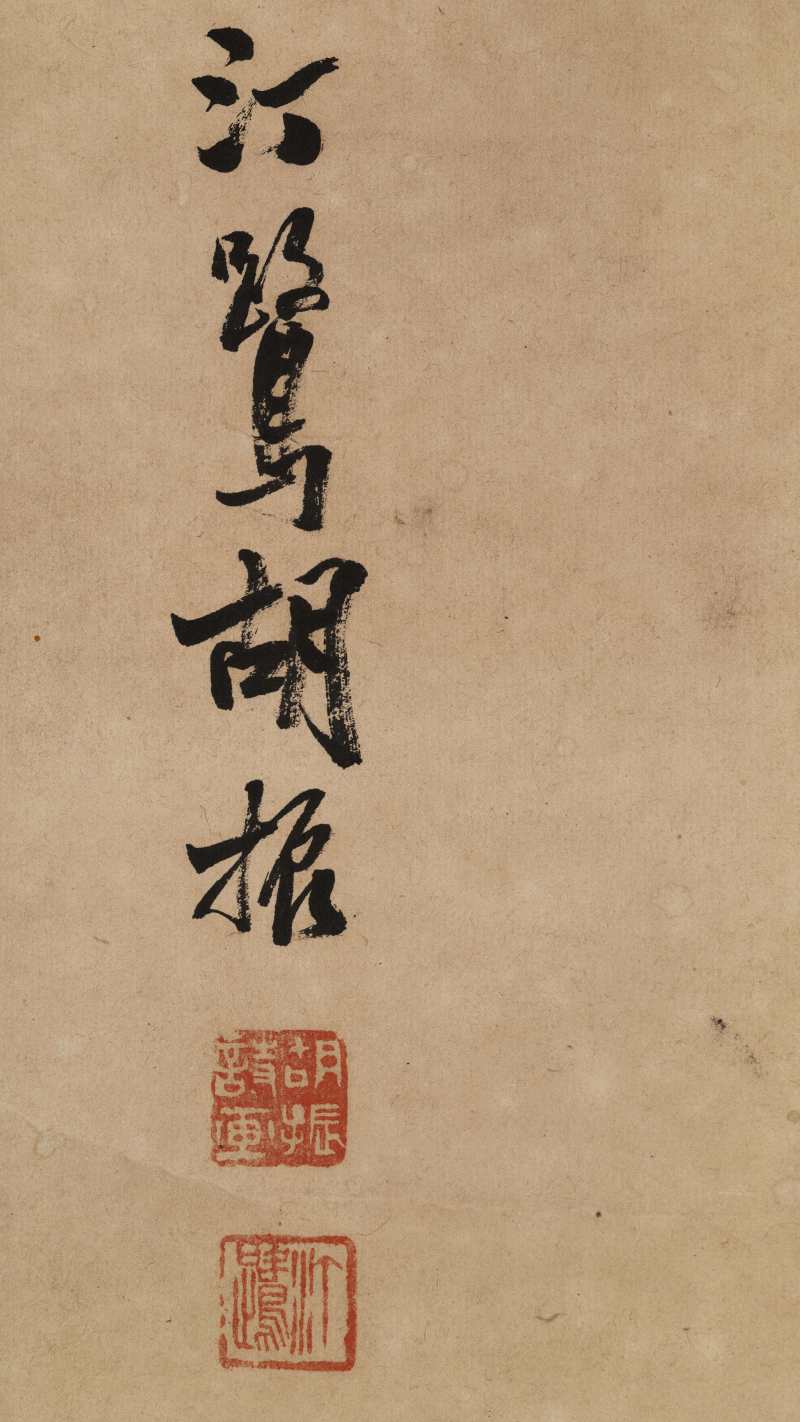 汀鷺胡振
胡振
詩畫
汀鷺